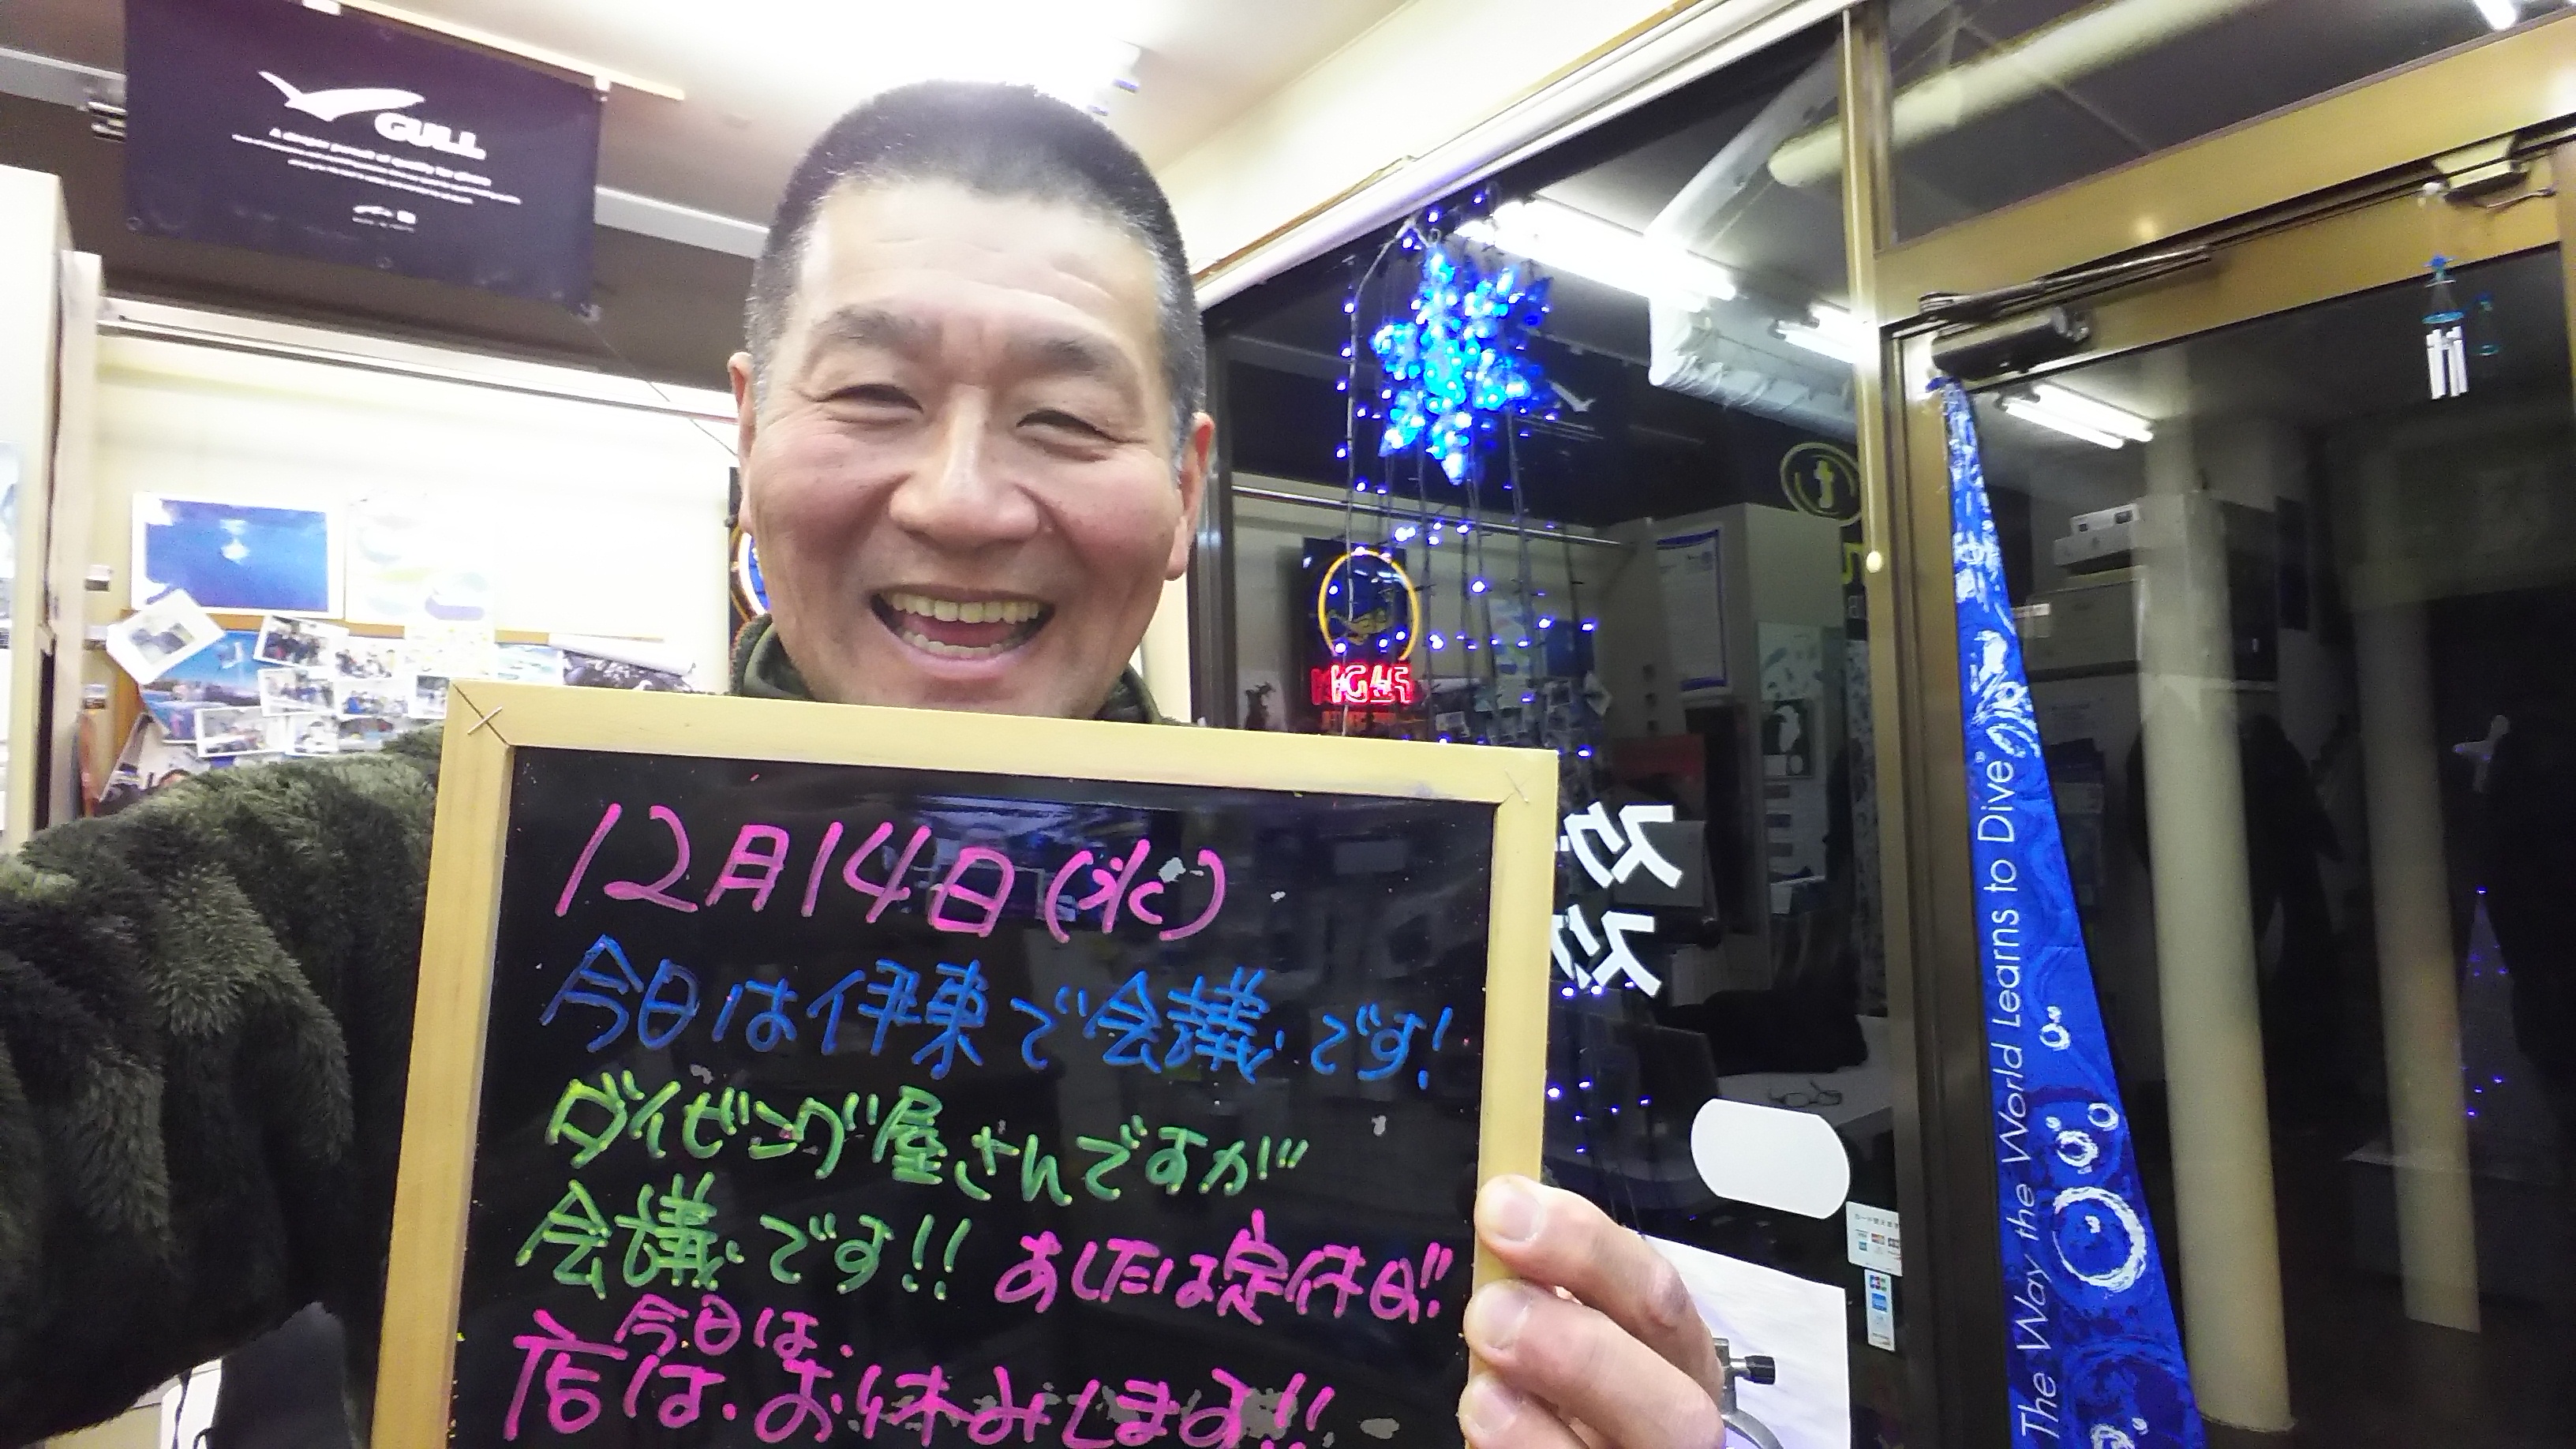 GULL
12月14日(水)
今日は伊東で会議です!
ダイビング屋さんですが!!
会議です!! あしたは定休日!!
今日は、
店は、お休みします!!
The Way the World Learns to Dive